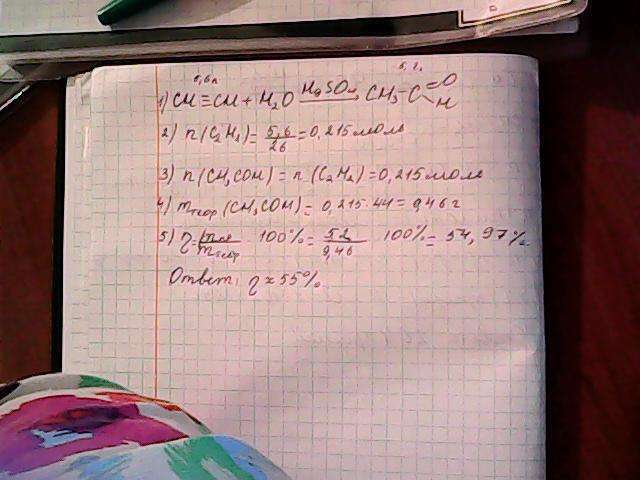 5,6л 5,2г
1) CH≡CH + H₂O HgSO₄ CH₃-C=O H
2) n(C₂H₂) = 5,6/26 = 0,215 моль
3) n(CH₃COH) = n(C₂H₂) = 0,215 моль
4) mтеор(CH₃COH) = 0,215·44 = 9,46 г
5) η = mпр/mтеор 100% = 5,2/9,46 100% = 54,97%
Ответ: η ≈ 55%